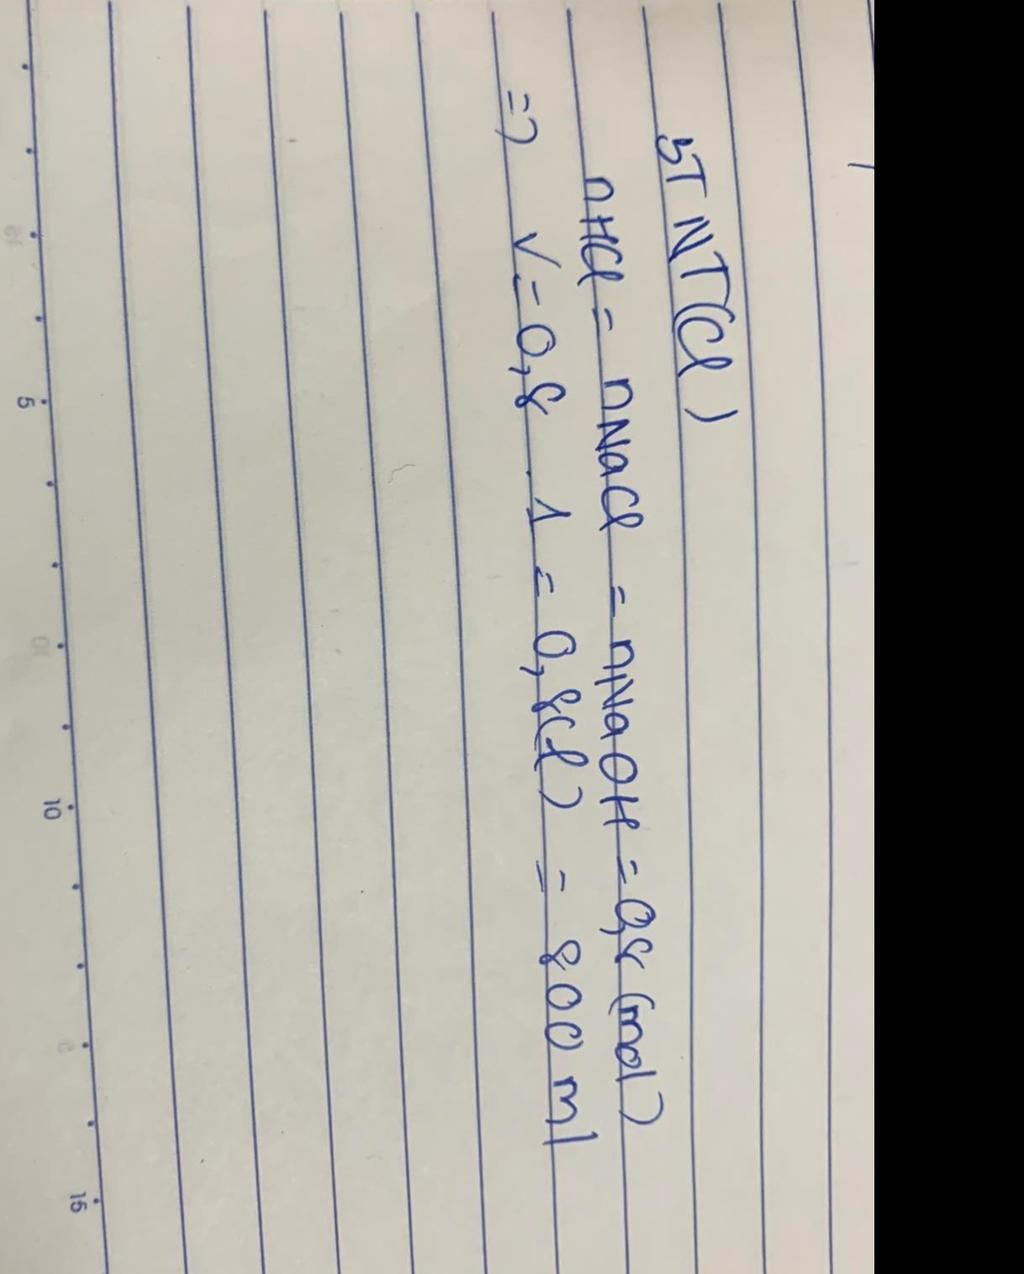 BT NT(Cl)
nHCl = nNaCl = nNaOH = 0,8 (mol)
=> V = 0,8 . 1 = 0,8(l) = 800 ml
5 10 15